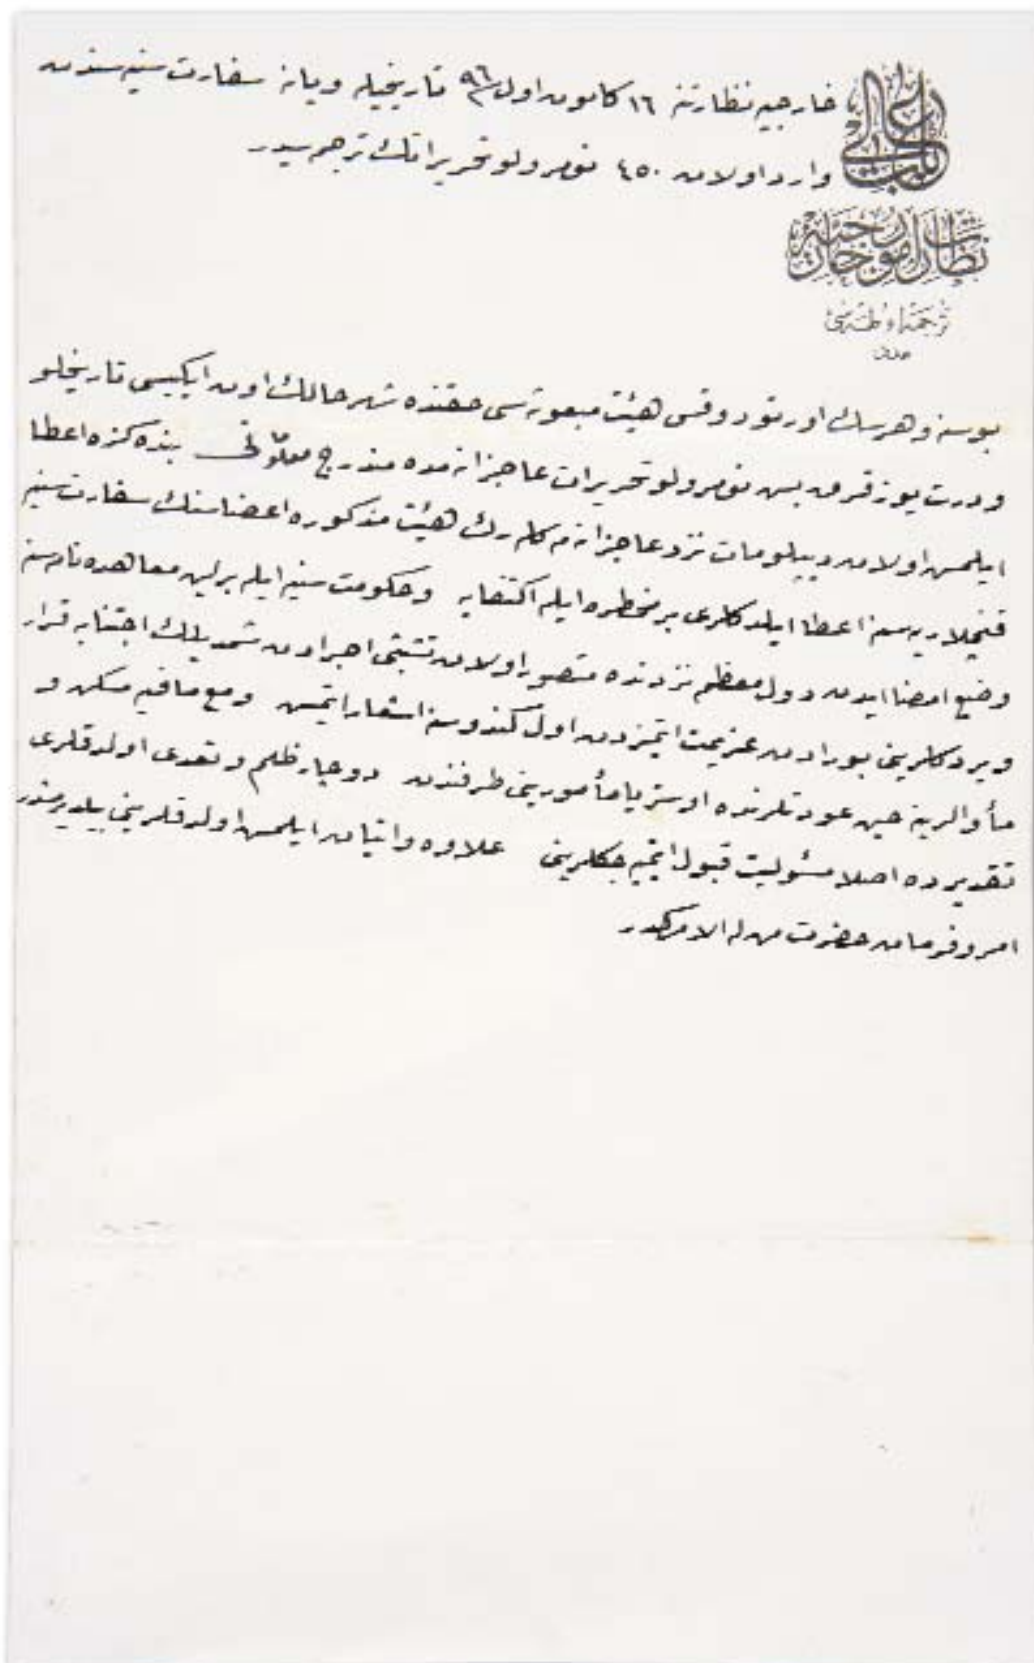 باب عالی
نظارت امور خارجیه
ترجمه اوطه سی
عدد
خارجیه نظارتنه ١٦ كانون اول ٩٦ تاریخیله ویانه سفارت سنیه سندن
وارد اولان ٤٥٠ نومرولو تحریراتك ترجمه سیدر
بوسنه وهرسك اورتودوقس هیئت مبعوثه سی حقنده شهر حالك اون ایكیسی تاریخلو
و درت یوز قرق بش نومرولو تحریرات عاجزانه مده مندرج معلوماتی بنده كزه اعطا
ایلمش اولان دیپلومات نزد عاجزانه مه كله رك هیئت مذكوره اعضاسنك سفارت سنیه
اعطا ایلدكلری بر مخطره ایله اكتفایه و حكومت سنیه ایله برلین معاهده نامه سنه
وضع امضا ایدن دول معظمه نزدنده متصور اولان تشبثی اجرادن شمدیلك اجتنابه قرار
ویردكلرینی بورادن عزیمت ایتمزدن اول كندوسنه اشعار ایتمش ومع مافیه مسكن و
مأوالرینه حین عودتلرنده اوستریا مأمورینی طرفندن دوچار ظلم و تعدی اولدقلری
تقدیرده اصلا مسئولیت قبول ایتمیه جكلرینی علاوه واتیان ایلمش اولدقلرینی بیلدیرمشدر
امر و فرمان حضرت من له الامركدر